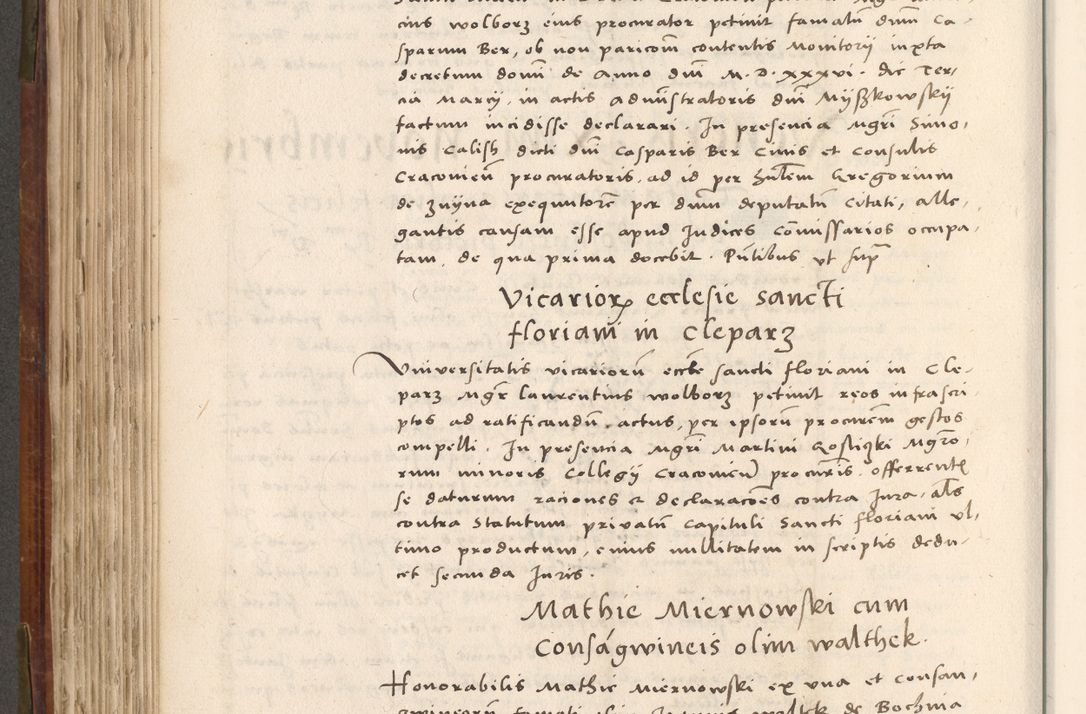 cius wolborz eius procurator petiuit famatū dnm̄ Ca-
sparum Ber, ob non paricom̄ contentis Monitorij iuxta
decretum domī de Anno dnī M. D. xxxvi. die Ter-
cia Marcij, in actis admīstratoris dnī Myszkowskij
factum incidisse declarari. In presencia Mgrī Simo-
nis Calish dicti dnī Casparis Ber Ciuis et Consulis
Cracouieñ procuratoris, ad id per hūlem Gregorium
de zuyna exequutorē per dnm̄ deputatū Citati, alle-
gantis causam esse apud Iudices Cōmissarios occupa-
tam, de qua prima docebit. Pn̄tibus vt sup̄
Vicarior ecclesie sancti
floriani in Cleparz
Vniuersitatis vicariorū eccl̄e sancti floriani in Cle-
parz Mgr̄ laurentius wolborz petiuit reos infrascri-
ptos ad ratificandū actus, per ipsorū procurem̄ gestos
compelli. In presencia Mgrī Martini Mgrō-
rum minoris Collegij Cracouieñ procurīs offerrentē
se daturum raciones et declaracōes contra Iura, al̄s
contra Statutum priuatū Capituli Sancti floriani vl-
timo productum, cuius nullitatem in scriptis dedu-
cet secunda Iuris.
Mathie Miernowski cum
Conságwineis olim walthek.
Honorabilis Mathie Miernowski ex vna et Consan-
gwineorū famati olim Ioannis waltek de Bochnia